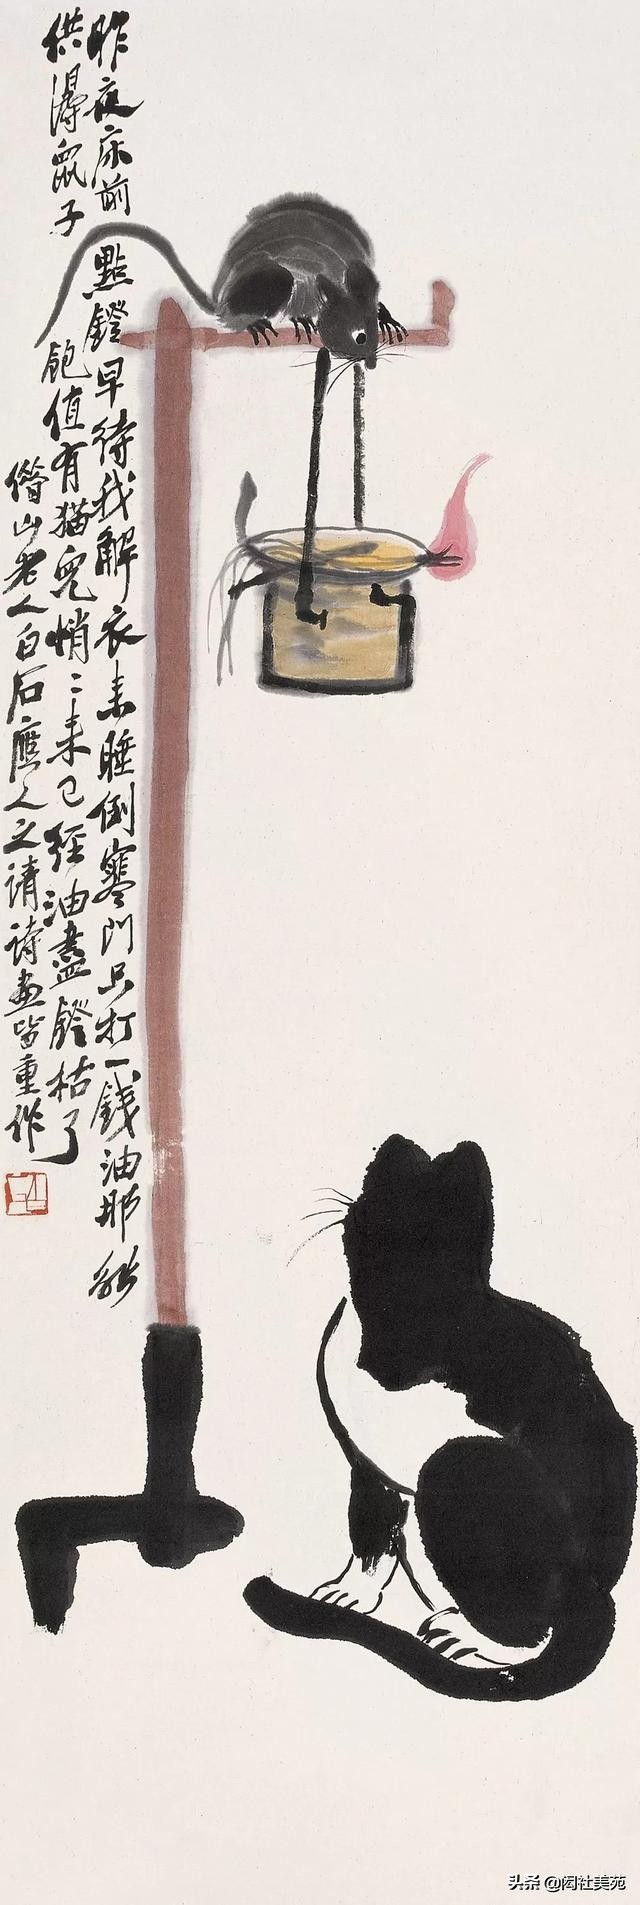 昨夜床前點鐙早待我解衣来睡倒寒門只打一錢油那能
供得鼠子飽值有猫兒悄〻来已經油盡鐙枯了
借山老人白石應人之請詩畫皆重作
头条 @闳社美苑